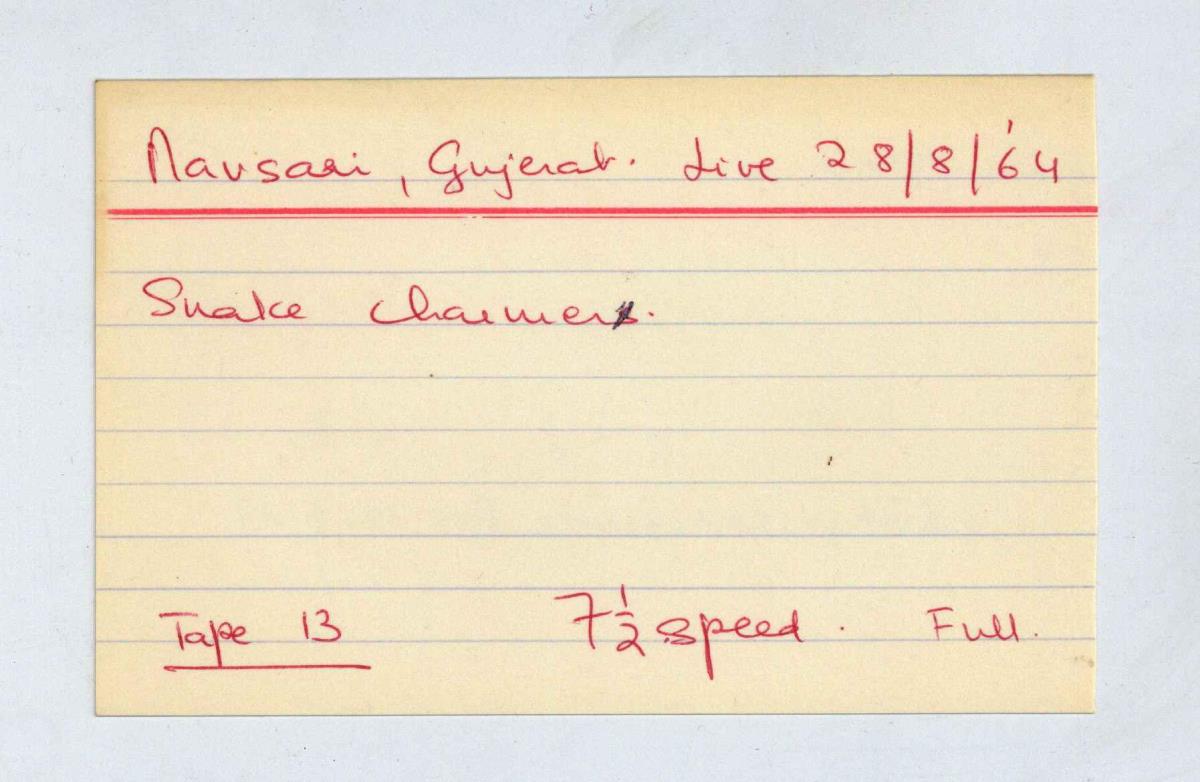 Navsari, Gujerat. Live 28/8/'64
Snake Charmers.
Tape 13 7½ speed. Full.